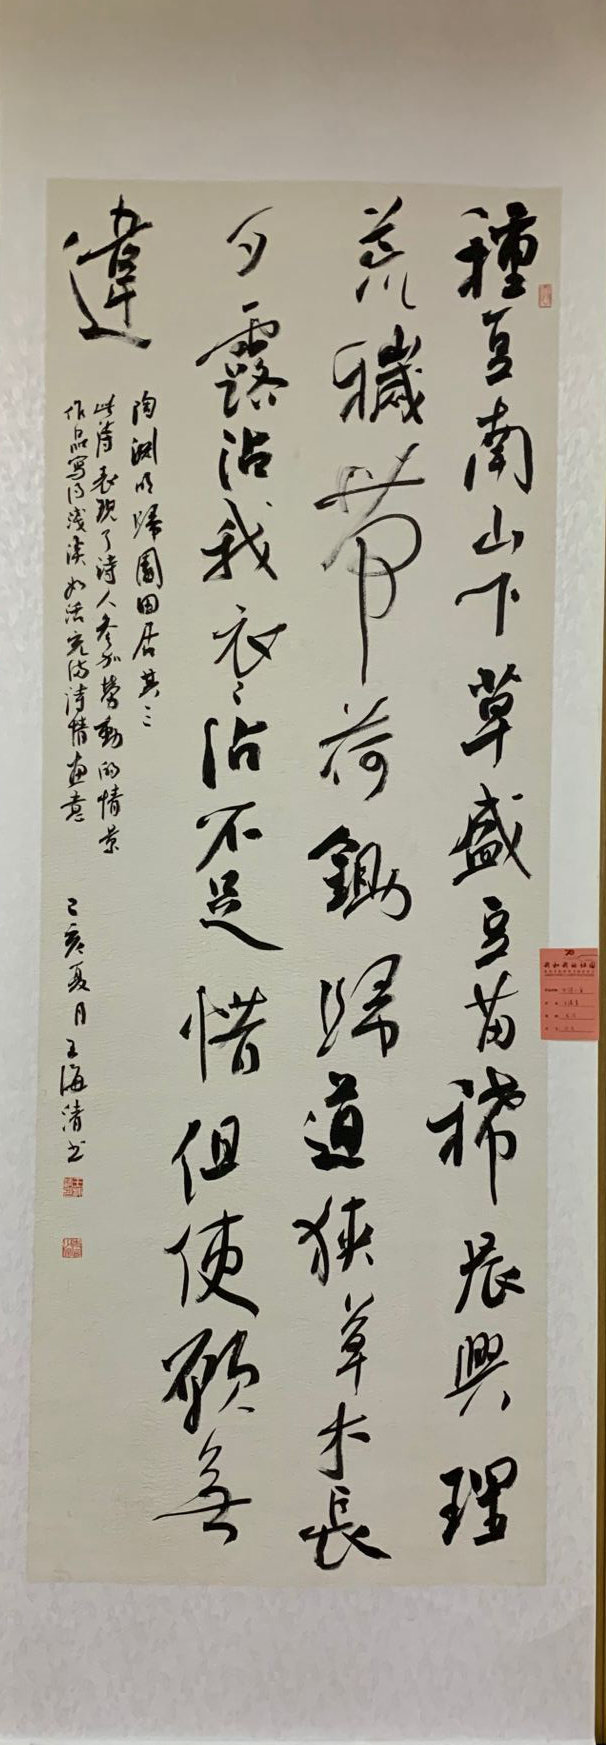 種豆南山下草盛豆苗稀晨興理
荒穢帶荷鋤歸道狹草木長
夕露沾我衣〻沾不足惜但使願無
違
陶渊明歸園田居其三
此诗表现了诗人参加勞動的情景
作品寫得淺淡如话充满诗情画意
己亥夏月王海清书
我和我的祖国